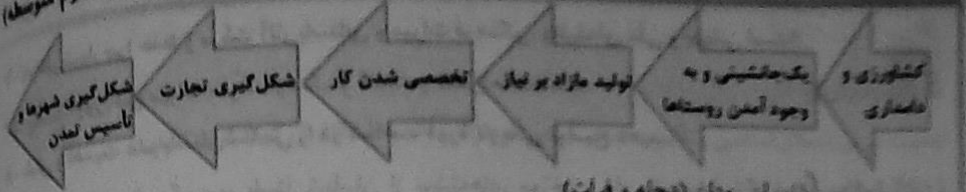 کشاورزی و
دامداری
یک‌جانشینی و به
وجود آمدن روستاها
تولید مازاد بر نیاز
تخصصی شدن کار
شکل‌گیری تجارت
شکل‌گیری شهرها و
تأسیس تمدن